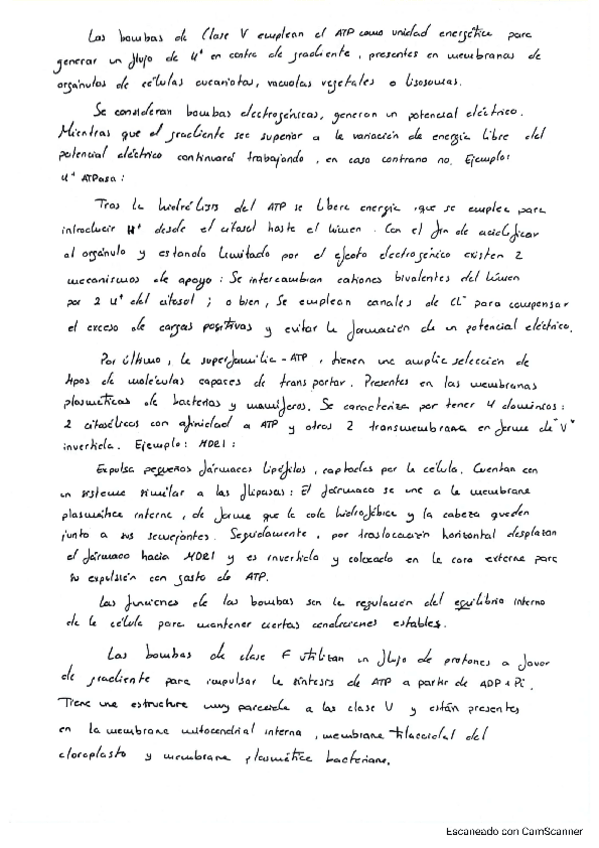 Las bombas de Clase V emplean el ATP como unidad energética para
generar un flujo de H⁺ en contra de gradiente, presentes en membranas de
orgánulos de células eucariotas, vacuolas vegetales o lisosomas.
Se consideran bombas electrogénicas, generan un potencial eléctrico.
Mientras que el gradiente sea superior a la variación de energía libre del
potencial eléctrico continuará trabajando, en caso contrario no. Ejemplo:
H⁺ ATPasa:
Tras la hidrólisis del ATP se libera energía que se emplea para
introducir H⁺ desde el citosol hasta el lúmen. Con el fin de acidificar
al orgánulo y estando limitado por el efecto electrogénico existen 2
mecanismos de apoyo: Se intercambian cationes bivalentes del lúmen
por 2 H⁺ del citosol; o bien, Se emplean canales de CL⁻ para compensar
el exceso de cargas positivas y evitar la formación de un potencial eléctrico.
Por último, la superfamilia-ATP, tienen una amplia selección de
tipos de moléculas capaces de transportar. Presentes en las membranas
plasmáticas de bacterias y mamíferos. Se caracteriza por tener 4 dominios:
2 citosólicos con afinidad a ATP y otros 2 transmembrana en forma de "V"
invertida. Ejemplo: MDR1:
Expulsa pequeños fármacos lipófilos, captados por la célula. Cuentan con
un sistema similar a las flipasas: El fármaco se une a la membrana
plasmática interna, de forma que la cola hidrofóbica y la cabeza queden
junto a sus semejantes. Seguidamente, por traslocación horizontal desplazan
el fármaco hacia MDR1 y es invertido y colocado en la cara externa para
su expulsión con gasto de ATP.
Las funciones de las bombas son la regulación del equilibrio interno
de la célula para mantener ciertas condiciones estables.
Las bombas de clase F utilizan un flujo de protones a favor
de gradiente para impulsar la síntesis de ATP a partir de ADP + Pi.
Tiene una estructura muy parecida a las clase V y están presentes
en la membrana mitocondrial interna, membrana tilacoidal del
cloroplasto y membrana plasmática bacteriana.
Escaneado con CamScanner